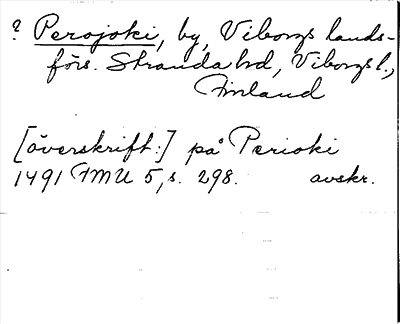 ? Perojoki, by, Viborgs lands-
förs. Stranda hd, Viborgs l.,
Finland
[överskrift:] på Perioki
1491 FMU 5, s. 298. avskr.